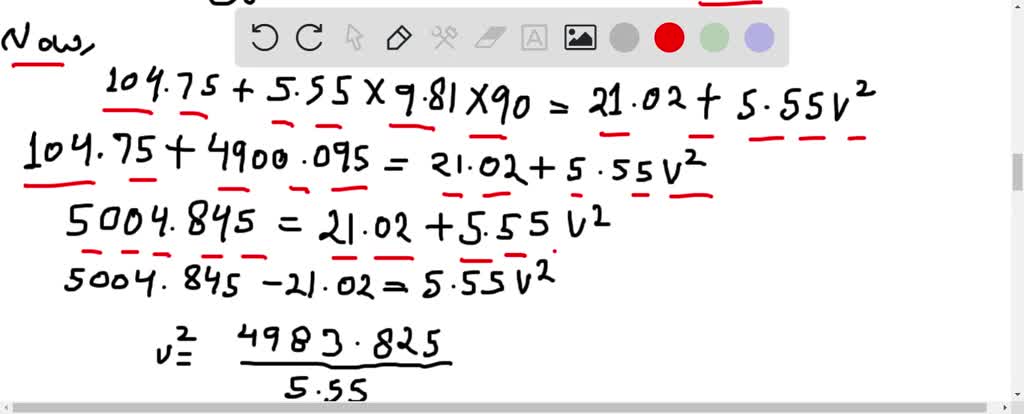 Now,
104.75 + 5.55 × 9.81 × 90 = 21.02 + 5.55v²
104.75 + 4900.095 = 21.02 + 5.55v²
5004.845 = 21.02 + 5.55 v²
5004.845 - 21.02 = 5.55v²
v² = 4983.825
5.55